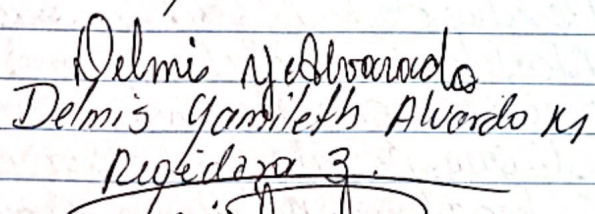 Delmis Y Alvarado
Delmis Yamileth Alvardo M
Regidora 3.